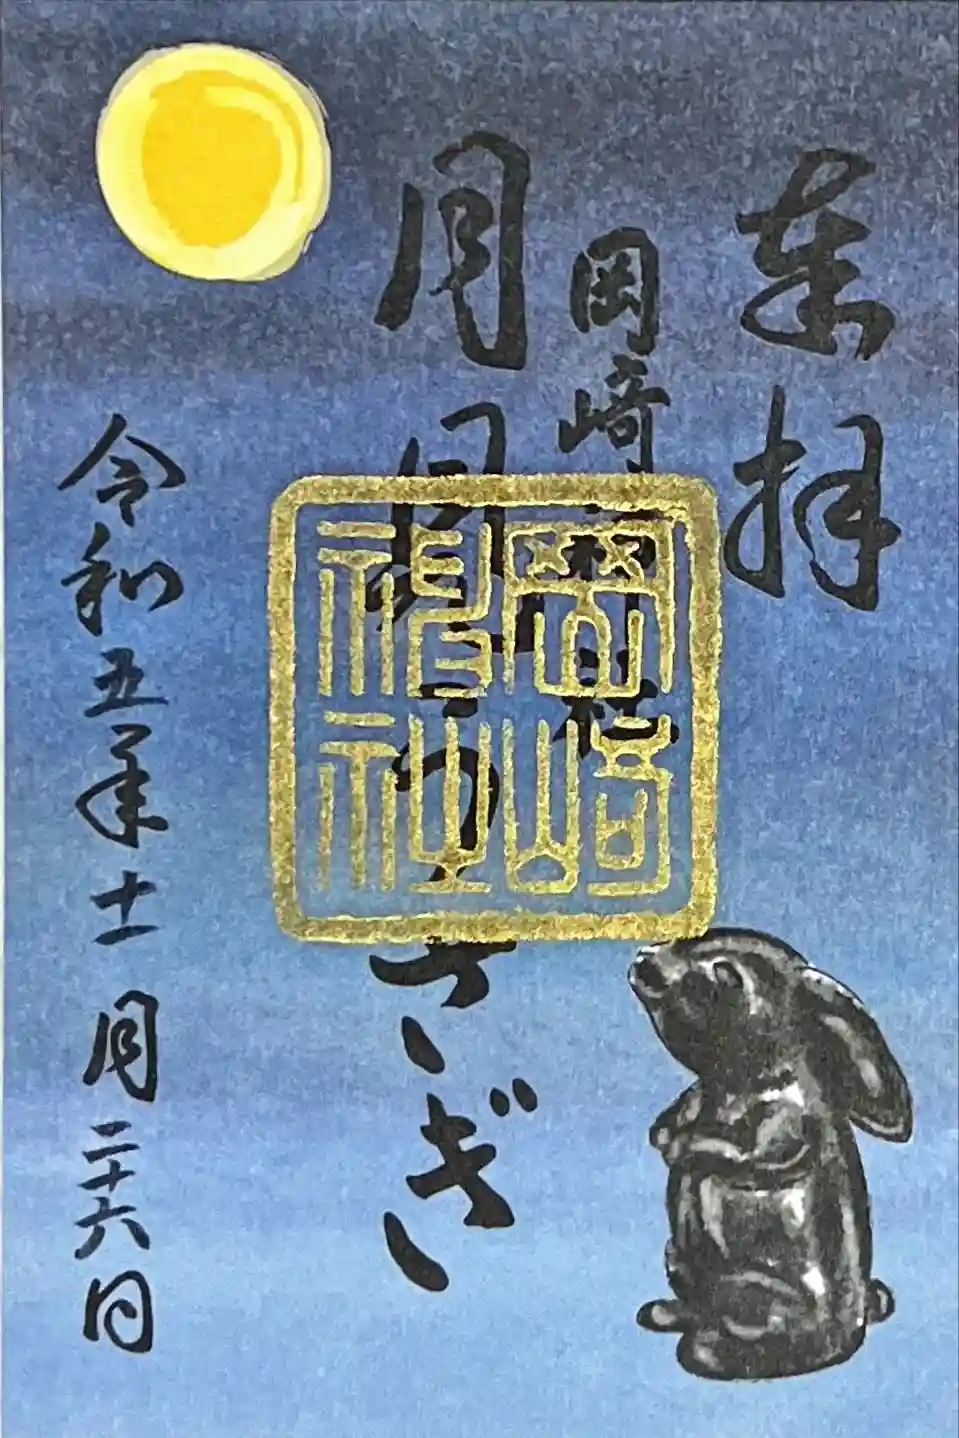 奉拝
岡崎神社
月うさぎ
岡崎
神社
令和五年十一月二十六日